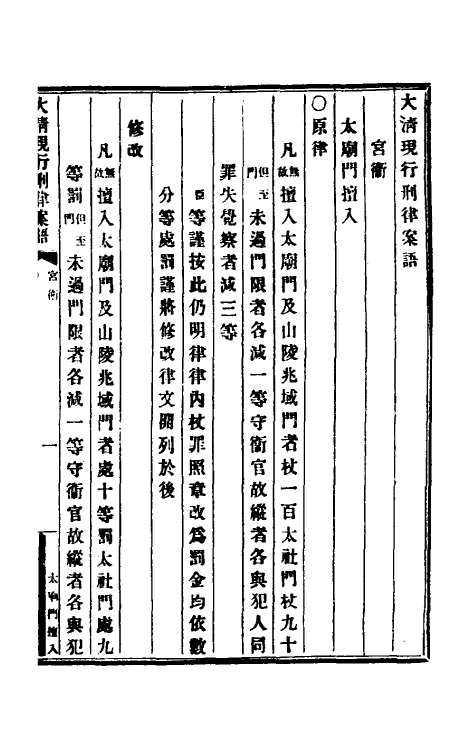 大淸現行刑律案語
宮衞
太廟門擅入
○原律
凡無故擅入太廟門及山陵兆域門者杖一百太社門杖九十
但至門未過門限者各減一等守衞官故縱者各與犯人同
罪失覺察者減三等
臣等謹按此仍明律律內杖罪照章改爲罰金均依數
分等處罰謹將修改律文開列於後
修改
凡無故擅入太廟門及山陵兆域門者處十等罰太社門處九
等罰但至門未過門限者各減一等守衞官故縱者各與犯
大淸現行刑律案語 宮衞 一 太廟門擅入